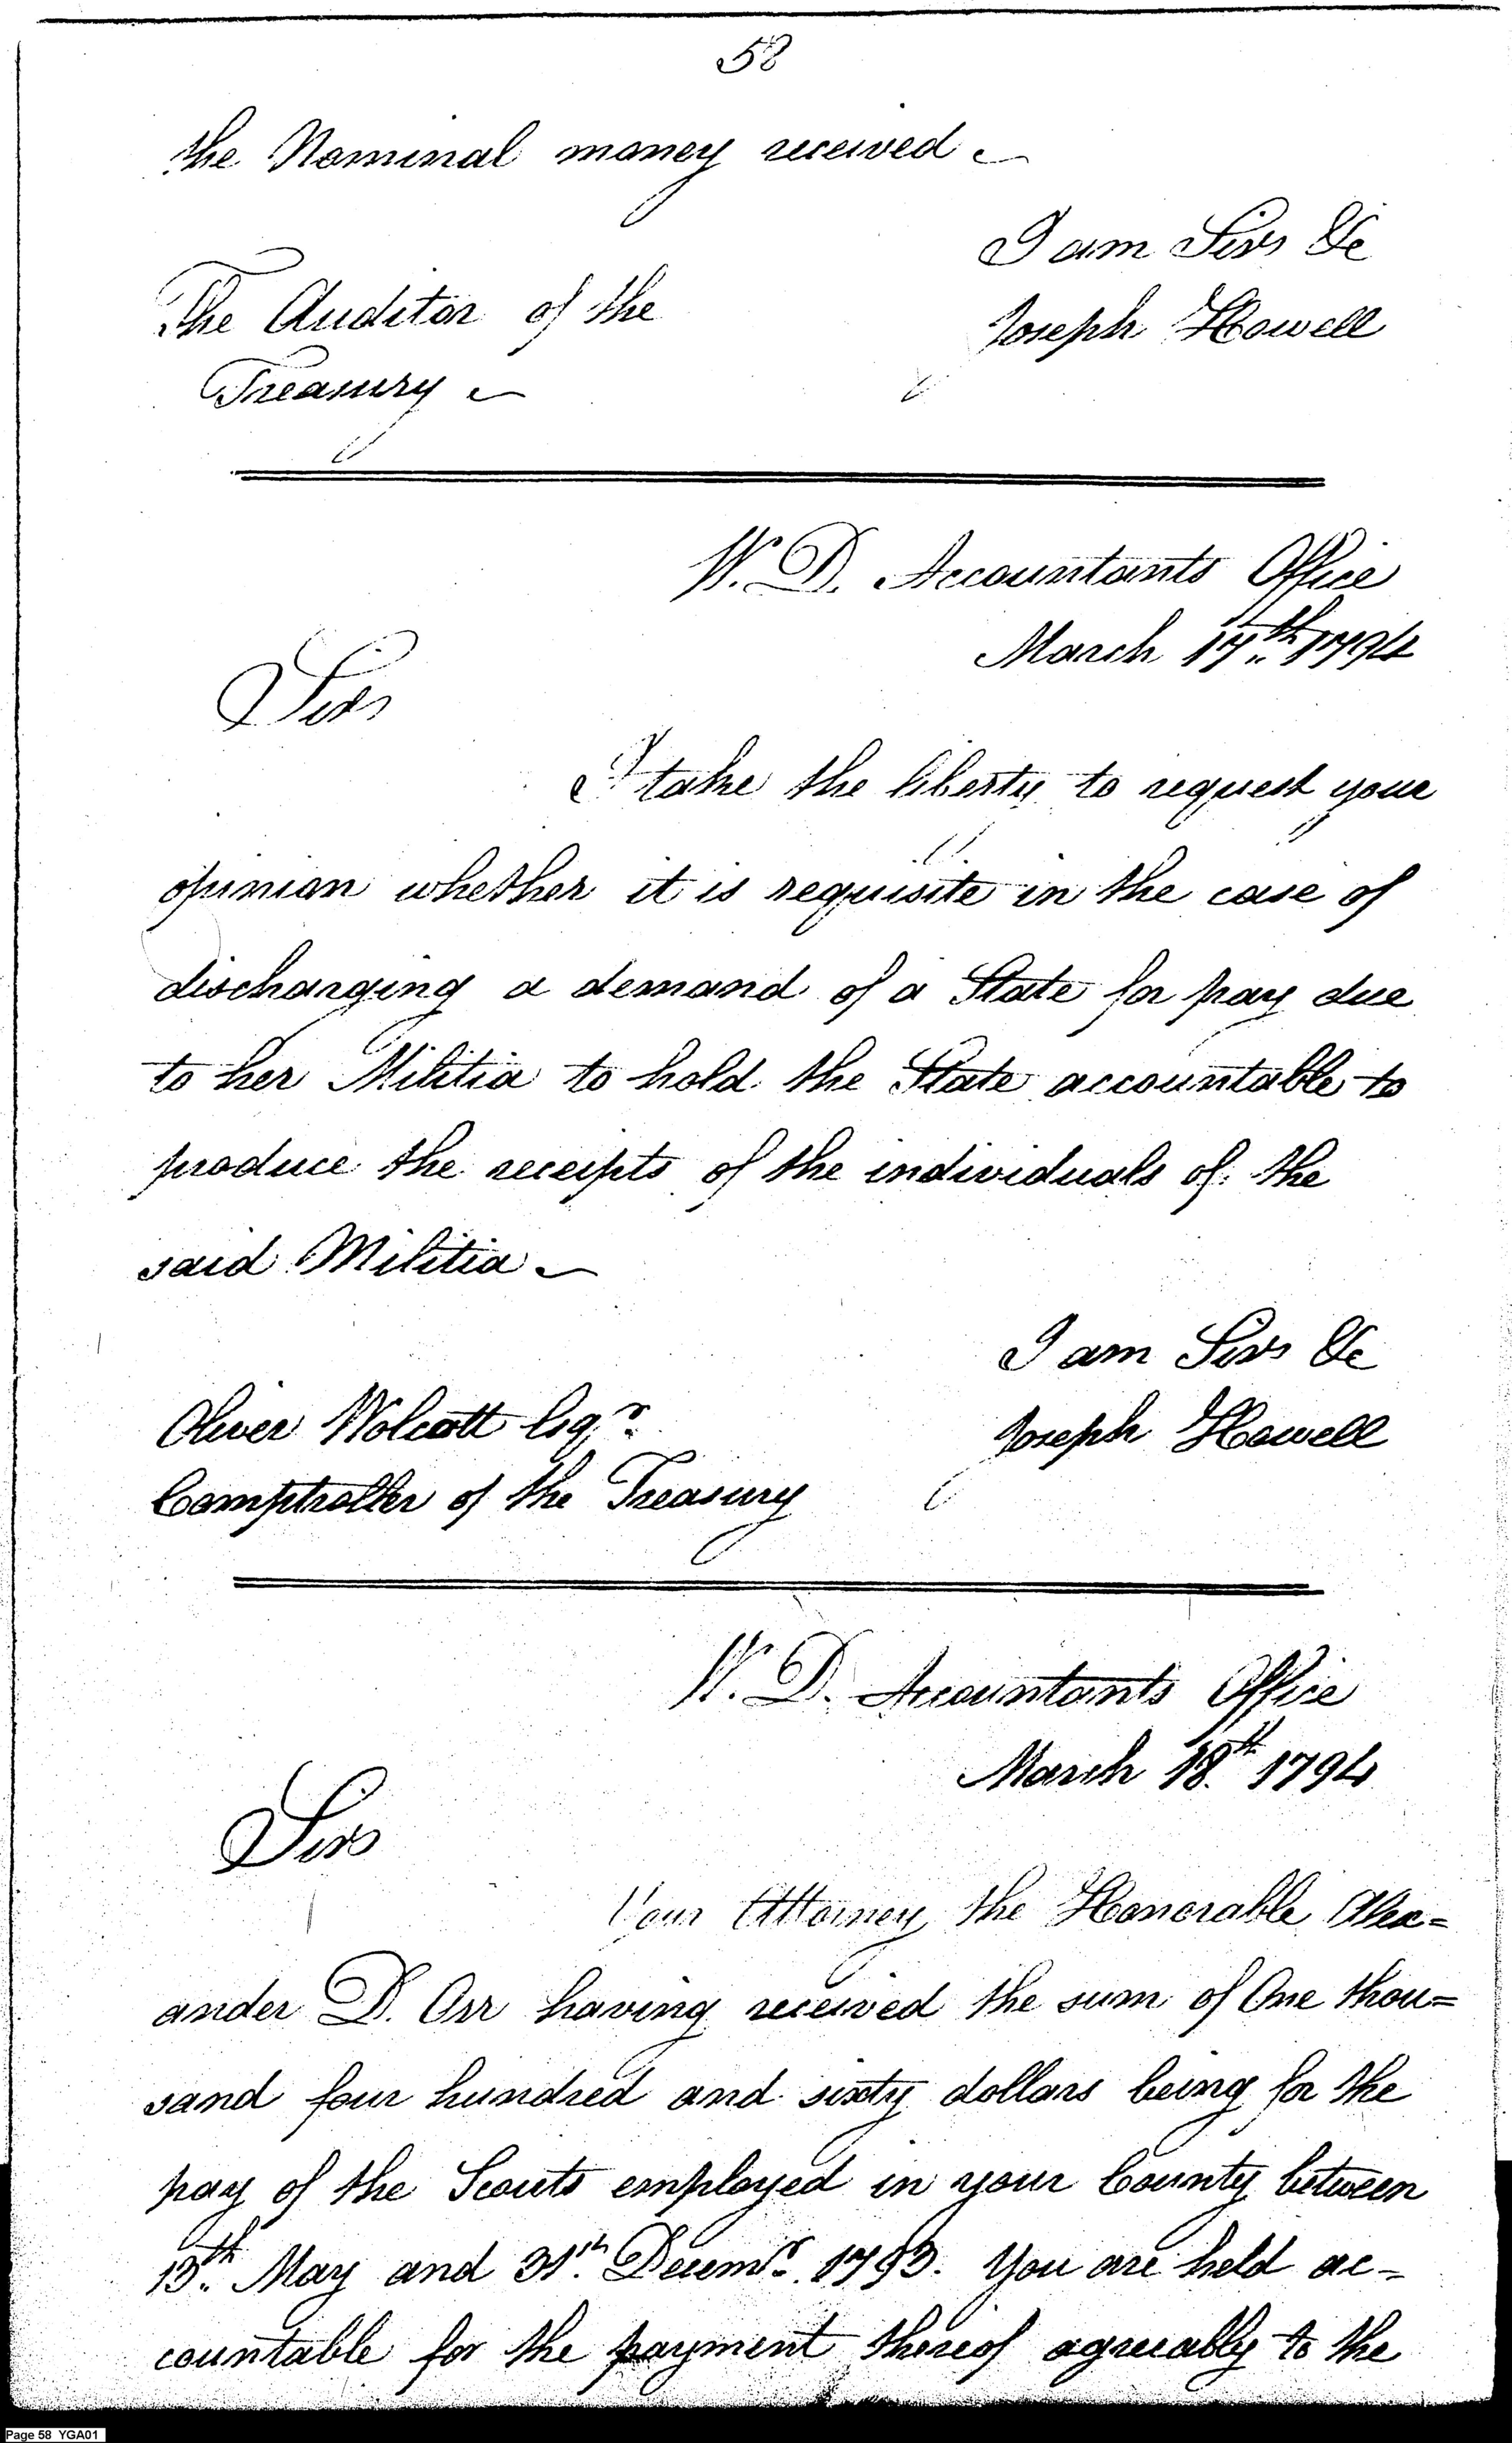 58
the Nominal money received
I am Sir &c
The Auditor of the
Joseph Howell
Treasury
W. D. Accountants Office
March 17th 1794
Sir
I take the liberty to request your
opinion whether it is requisite in the case of
discharging a demand of a State for pay due
to her Militia to hold the State accountable to
produce the receipts of the individuals of the
said Militia
I am Sir &c
Oliver Wolcott Esqr.
Joseph Howell
Comptroller of the Treasury
W. D. Accountants Office
March 18th 1794
Sir
Your Attorney the Honorable Alex=
ander D. Orr having received the sum of One thou=
sand four hundred and sixty dollars being for the
pay of the Scouts employed in your County between
13th May and 31st Decemr. 1793. You are held ac-
countable for the payment thereof agreeably to the
Page 58 YGA01